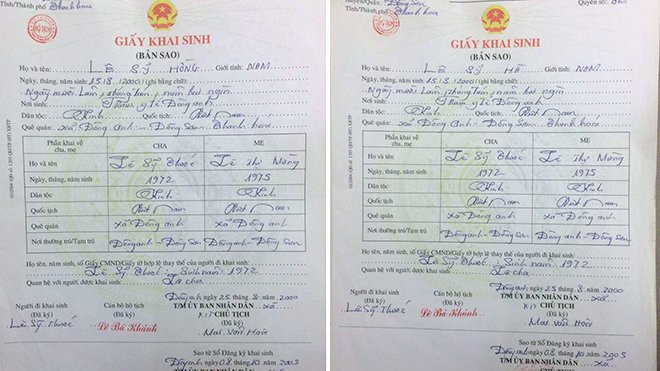 Tỉnh/Thành phố Thanh hoá
GIẤY KHAI SINH
(BẢN SAO)
Họ và tên: LÊ SỸ HỒNG Giới tính: NAM
Ngày, tháng, năm sinh: 15.8.2000 (ghi bằng chữ):
Ngày mười Lăm, tháng tám, năm hai ngìn
Nơi sinh: Trạm y tế Đông anh
Dân tộc: Kinh Quốc tịch: Việt Nam
Quê quán: xã Đông anh - Đông Sơn Thanh hoá
Phần khai về cha, mẹ CHA MẸ
Họ và tên Lê Sỹ Thước Lê Thị Mừng
Ngày, tháng, năm sinh 1972 1975
Dân tộc Kinh Kinh
Quốc tịch Việt Nam Việt Nam
Quê quán xã Đông anh Xã Đông anh
Nơi thường trú/Tạm trú Đông anh - Đông Sơn Đông anh - Đông Sơn
Họ tên, năm sinh, số Giấy CMND/Giấy tờ hợp lệ thay thế của người đi khai sinh
Lê Sỹ Thước Sinh năm 1972
Quan hệ với người được khai sinh: Là cha
Đông anh, ngày 25 tháng 8 năm 2000
T/M ỦY BAN NHÂN DÂN xã
Người đi khai sinh Cán bộ hộ tịch CHỦ TỊCH
(Đã ký) (Đã ký) (Đã ký)
Lê Sỹ Thước Lê Bá Khánh Mai Văn Hoà
Sao từ Sổ Đăng ký khai sinh
Đông anh, ngày 08 tháng 10 năm 2005
T/M ỦY BAN NHÂN DÂN
Huyện/Quận: Đông Sơn
Quyển số:
Tỉnh/Thành phố Thanh hoá
GIẤY KHAI SINH
(BẢN SAO)
Họ và tên: LÊ SỸ HÀ Giới tính: NAM
Ngày, tháng, năm sinh: 15.8.2000 (ghi bằng chữ):
Ngày mười Lăm, tháng tám, năm hai ngìn
Nơi sinh: Trạm y tế Đông anh
Dân tộc: Kinh Quốc tịch: Việt Nam
Quê quán: xã Đông anh - Đông Sơn Thanh hoá
Phần khai về cha, mẹ CHA MẸ
Họ và tên Lê Sỹ Thước Lê Thị Mừng
Ngày, tháng, năm sinh 1972 1975
Dân tộc Kinh Kinh
Quốc tịch Việt Nam Việt Nam
Quê quán xã Đông anh Xã Đông anh
Nơi thường trú/Tạm trú Đông anh - Đông Sơn Đông anh - Đông Sơn
Họ tên, năm sinh, số Giấy CMND/Giấy tờ hợp lệ thay thế của người đi khai sinh
Lê Sỹ Thước Sinh năm 1972
Quan hệ với người được khai sinh: Là cha
Đông anh, ngày 25 tháng 8 năm 2000
T/M ỦY BAN NHÂN DÂN xã
Người đi khai sinh Cán bộ hộ tịch CHỦ TỊCH
(Đã ký) (Đã ký) (Đã ký)
Lê Sỹ Thước Lê Bá Khánh Mai Văn Hoà
Sao từ Sổ Đăng ký khai sinh
Đông anh, ngày 08 tháng 10 năm 2005
T/M ỦY BAN NHÂN DÂN xã
CHỦ TỊCH